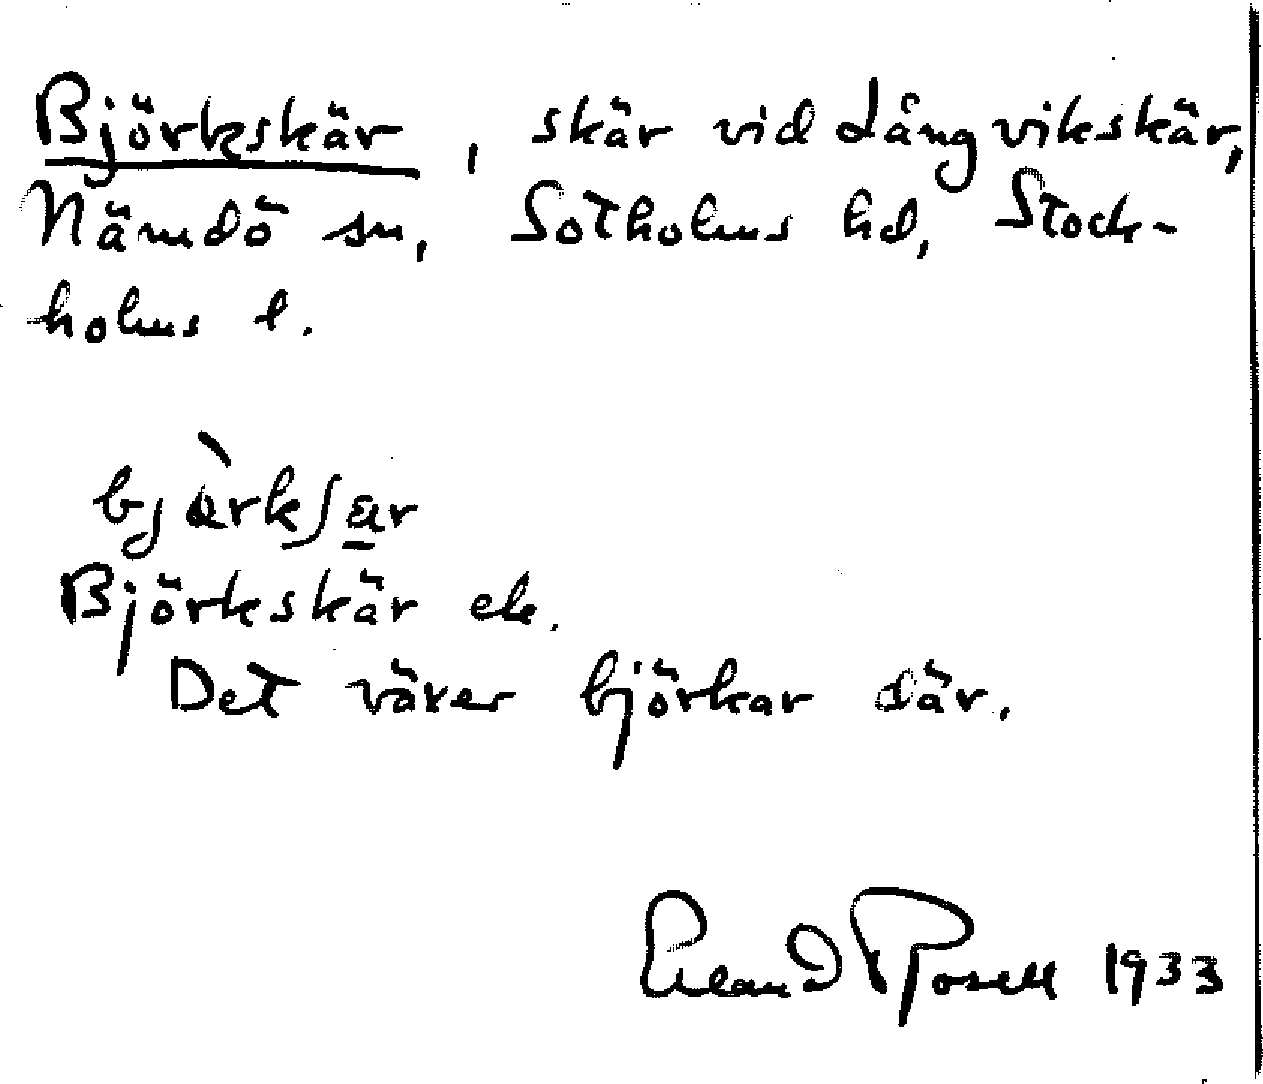 Björkskär, skär vid Långvikskär,
Nämdö sn, Sotholms hd, Stock-
holms l.
bjàrkʃær
Björkskär ek.
Det växer björkar där.
Erland Rosell 1933